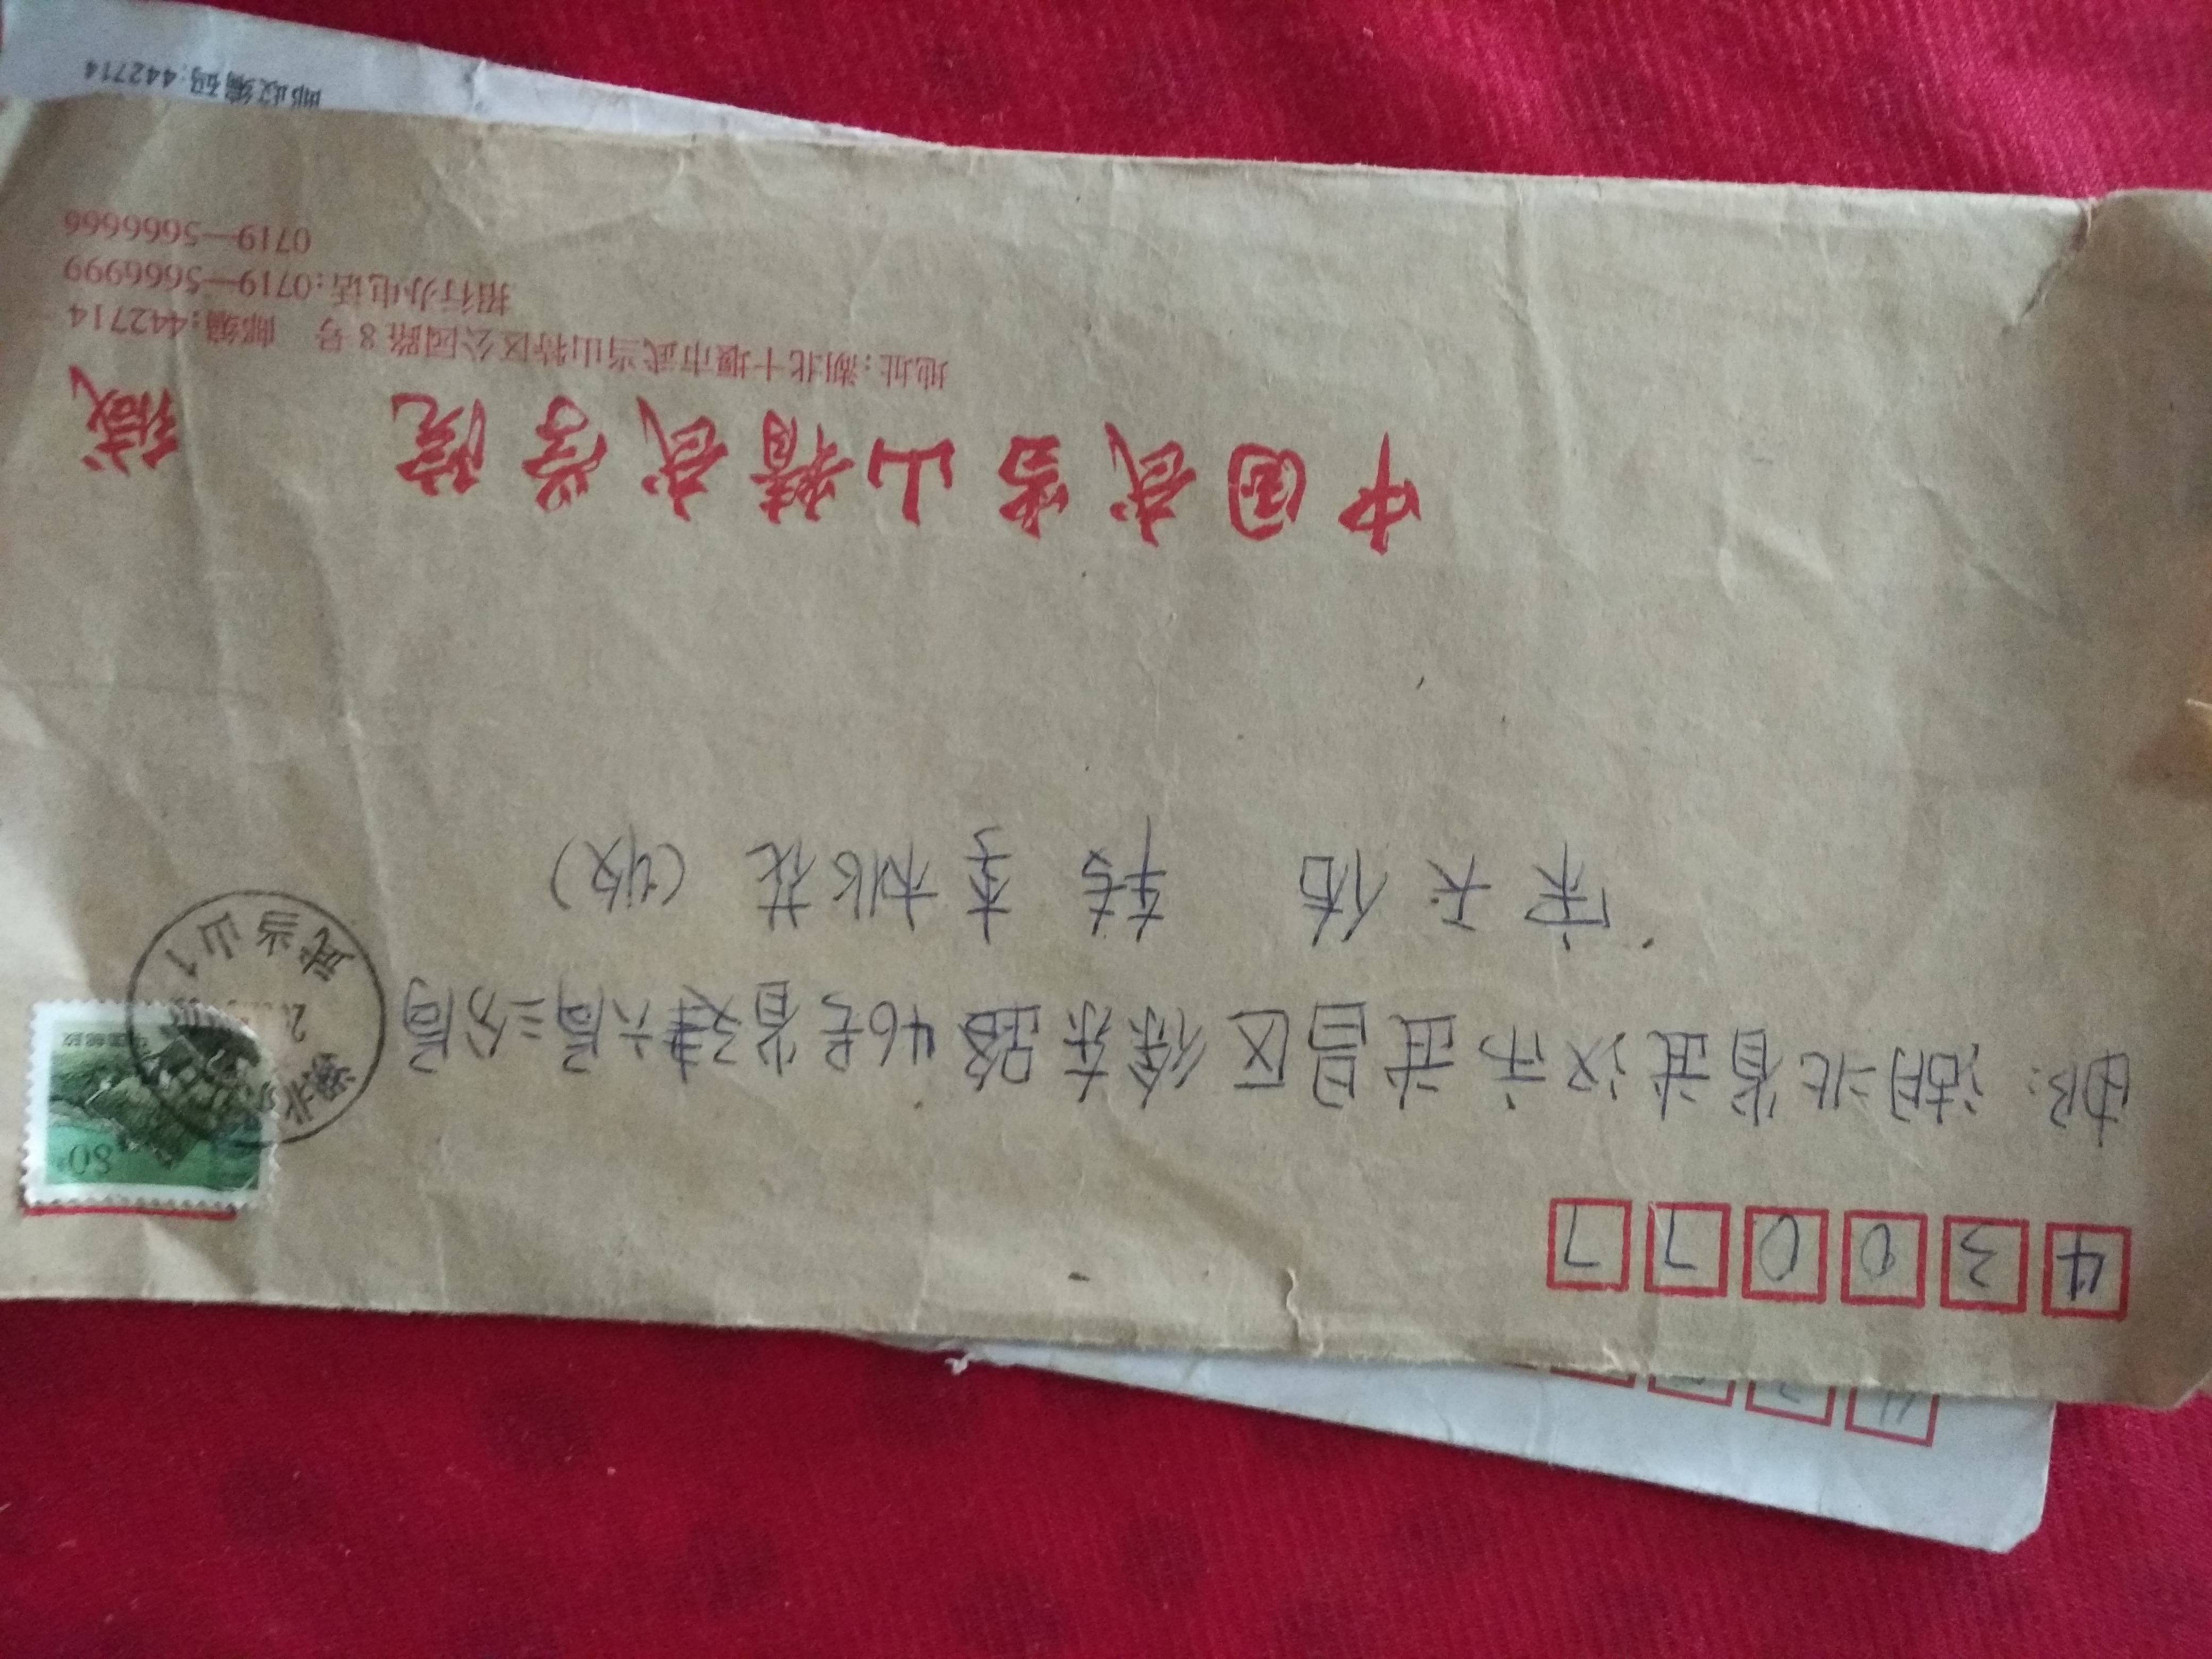 430077
邮:湖北省武汉市武昌区徐东路46号省建六局三分局
宋天佑 转 李桃花 (收)
80分
中国邮政
湖北
武当山1
中国武当山精武学院 缄
地址:湖北十堰市武当山特区公园路8号 邮编:442714
招行办电话:0719—5666999
0719—5666666
邮政编码:442714